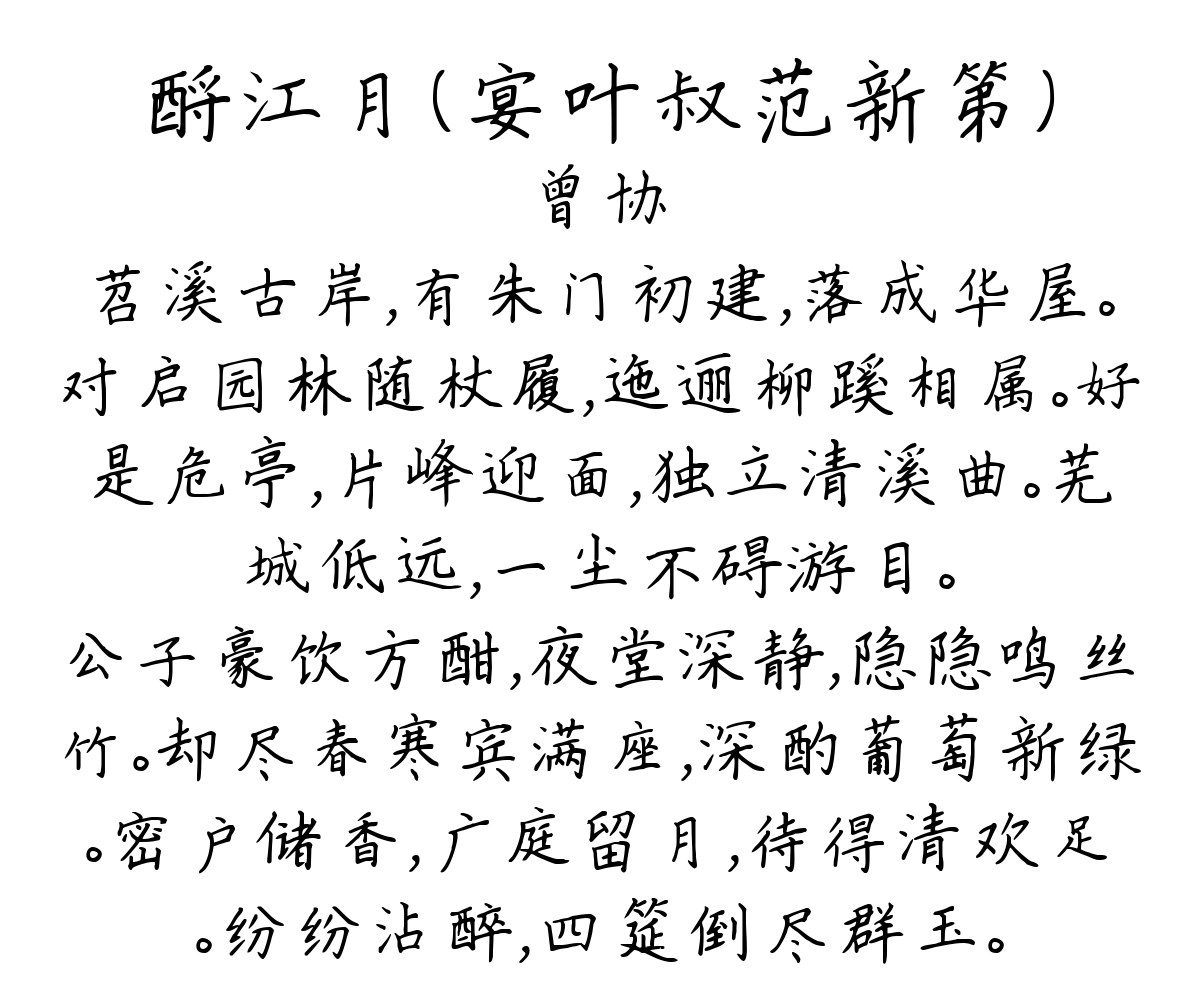 酹江月(宴叶叔范新第)
曾协
苕溪古岸,有朱门初建,落成华屋。
对启园林随杖履,迤逦柳蹊相属。好
是危亭,片峰迎面,独立清溪曲。芜
城低远,一尘不碍游目。
公子豪饮方酣,夜堂深静,隐隐鸣丝
竹。却尽春寒宾满座,深酌葡萄新绿
。密户储香,广庭留月,待得清欢足
。纷纷沾醉,四筵倒尽群玉。